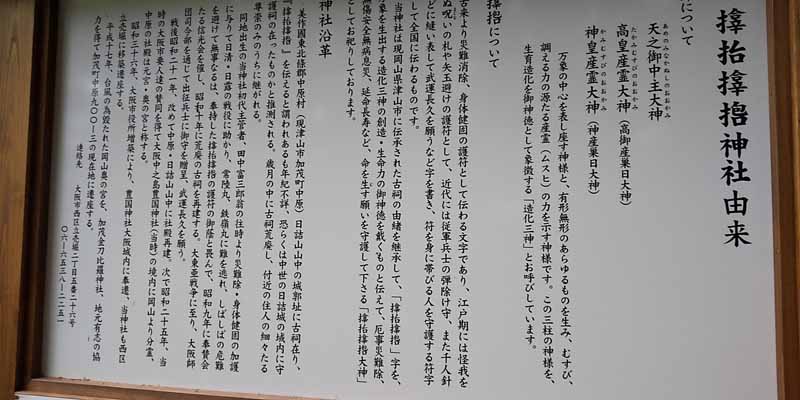 神社由来
について
天之御中主大神
あめのみなかぬしのおおかみ
高皇産霊大神（高御産巣日大神）
たかみむすびのおおかみ
神皇産霊大神（神産巣日大神）
かみむすびのおおかみ
万象の中心を表し座す神様と、有形無形のあらゆるものを生み、むすび、
調える力の源たる産霊（ムスヒ）の力を示す神様です。この三柱の神様を、
生育造化を御神徳として象徴する「造化三神」とお呼びしています。
について
古来より災難消除、身体健固の護符として伝わる文字であり、江戸期には怪我を
ぬ呪いの札や矢玉避けの護符として、近代には従軍兵士の弾除け守、また千人針
どに縫い表して武運長久を願うなど字を書き、符を身に帯びる人を守護する符字
して全国に伝わるものです。
当神社は現岡山県津山市に伝承された古祠の由緒を継承して、「」字を、
象を生出する造化三神の創造・生命力の御神徳を戴くものと伝えて、厄事災難除、
傷安全無病息災、延命長寿など、命を生す願いを守護して下さる「大神」
としてお祀りしております。
神社沿革
美作國東北條郡中原村（現津山市加茂町中原）日詰山山中の城郭址に古祠在り、
「」を伝えると謂われあるも年紀不詳、恐らくは中世の日詰城の城内に守
護祠の在ったものかと推測される。歳月の中に古祠荒廃し、付近の住人の細々たる
尊崇のみのうちに継がれる。
同地出生の当神社初代主管者、田中富三郎翁の往時より災難除・身体健固の加護
に与りて日清・日露の戦役に助かり、常陸丸、鉄嶺丸に難を逃れ、しばしばの危難
を避けて無事なるは、奉持したの護符の御蔭と畏んで、昭和九年に奉賛会
たる信光会を催し、昭和十年に荒廃の古祠を再建する。大東亜戦争に至り、大阪師
団司令部を通じて出征兵士に御守を贈呈、武運長久を願う。
戦後昭和二十一年、改めて中原・日詰山山中に社殿再建。次で昭和二十五年、当
時の大阪市要人達の賛同を得て大阪中之島豊国神社（当時）の境内に岡山より分霊、
中原の社殿は元宮・奥の宮と称する。
昭和三十六年、大阪市役所増築により、豊国神社大阪城内に奉遷、当神社も西区
立売堀に移築遷座する。
平成十七年、台風の為毀たれた岡山奥の宮を、加茂金刀比羅神社、地元有志の協
力を得て加茂町中原九〇一ー三の現在地に遷座する。
連絡先　大阪市西区立売堀二丁目五番二十六号
〇六ー六五三八ー二二五一